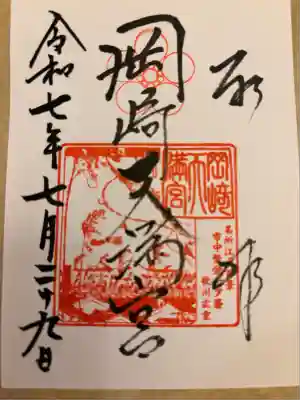 奉拝
岡崎天満宮
令和七年七月二十九日
岡﨑
天
満宮